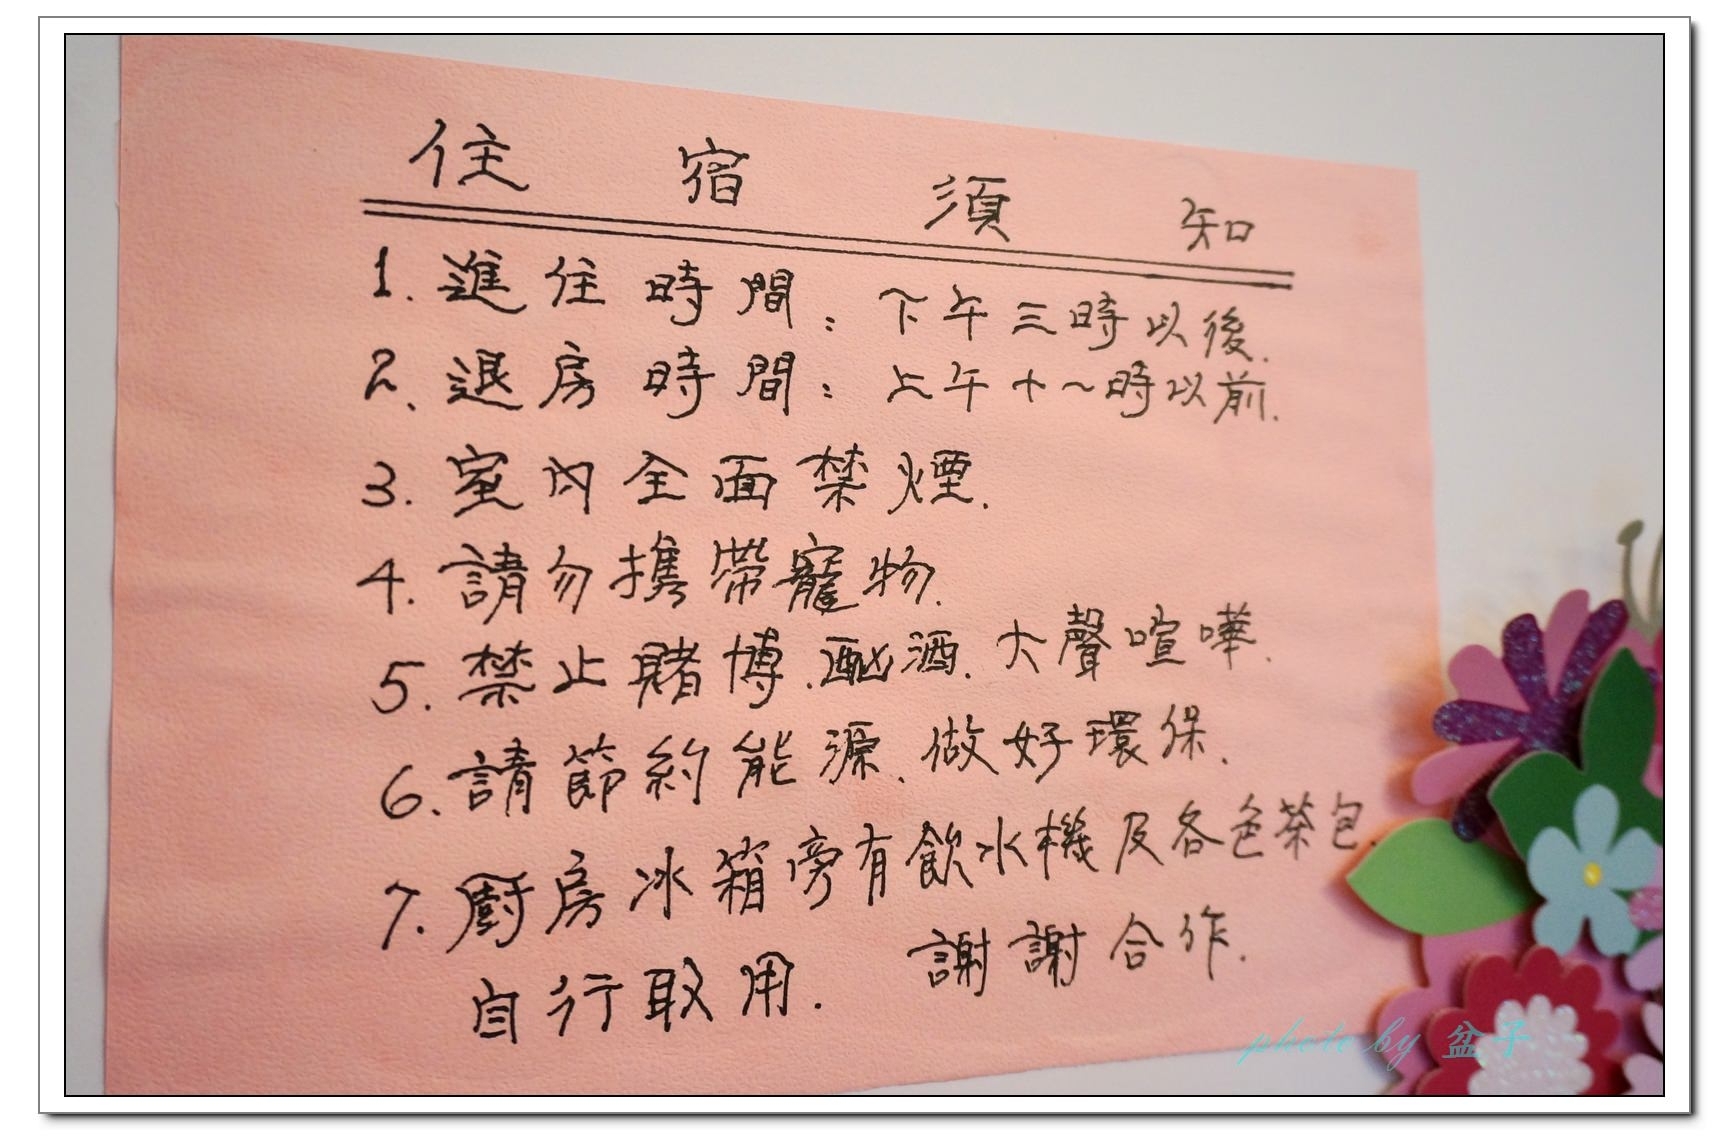 住宿須知
1. 進住時間：下午三時以後.
2. 退房時間：上午十一時以前.
3. 室內全面禁煙.
4. 請勿攜帶寵物.
5. 禁止賭博.酗酒.大聲喧嘩.
6. 請節約能源、做好環保.
7. 廚房冰箱旁有飲水機及各色茶包.
自行取用. 謝謝合作.
photo by 盆子